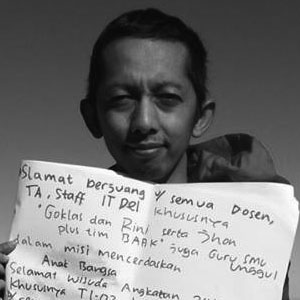 Slamat berjuang y semua Dosen,
TA, Staff IT Del khususnya
"Goklas dan Rini serta Jhon
plus tim BAAK" juga Guru SMU
dalam misi mencerdaskan Unggul
Anak Bangsa
Selamat Wisuda Angkatan
Khususnya